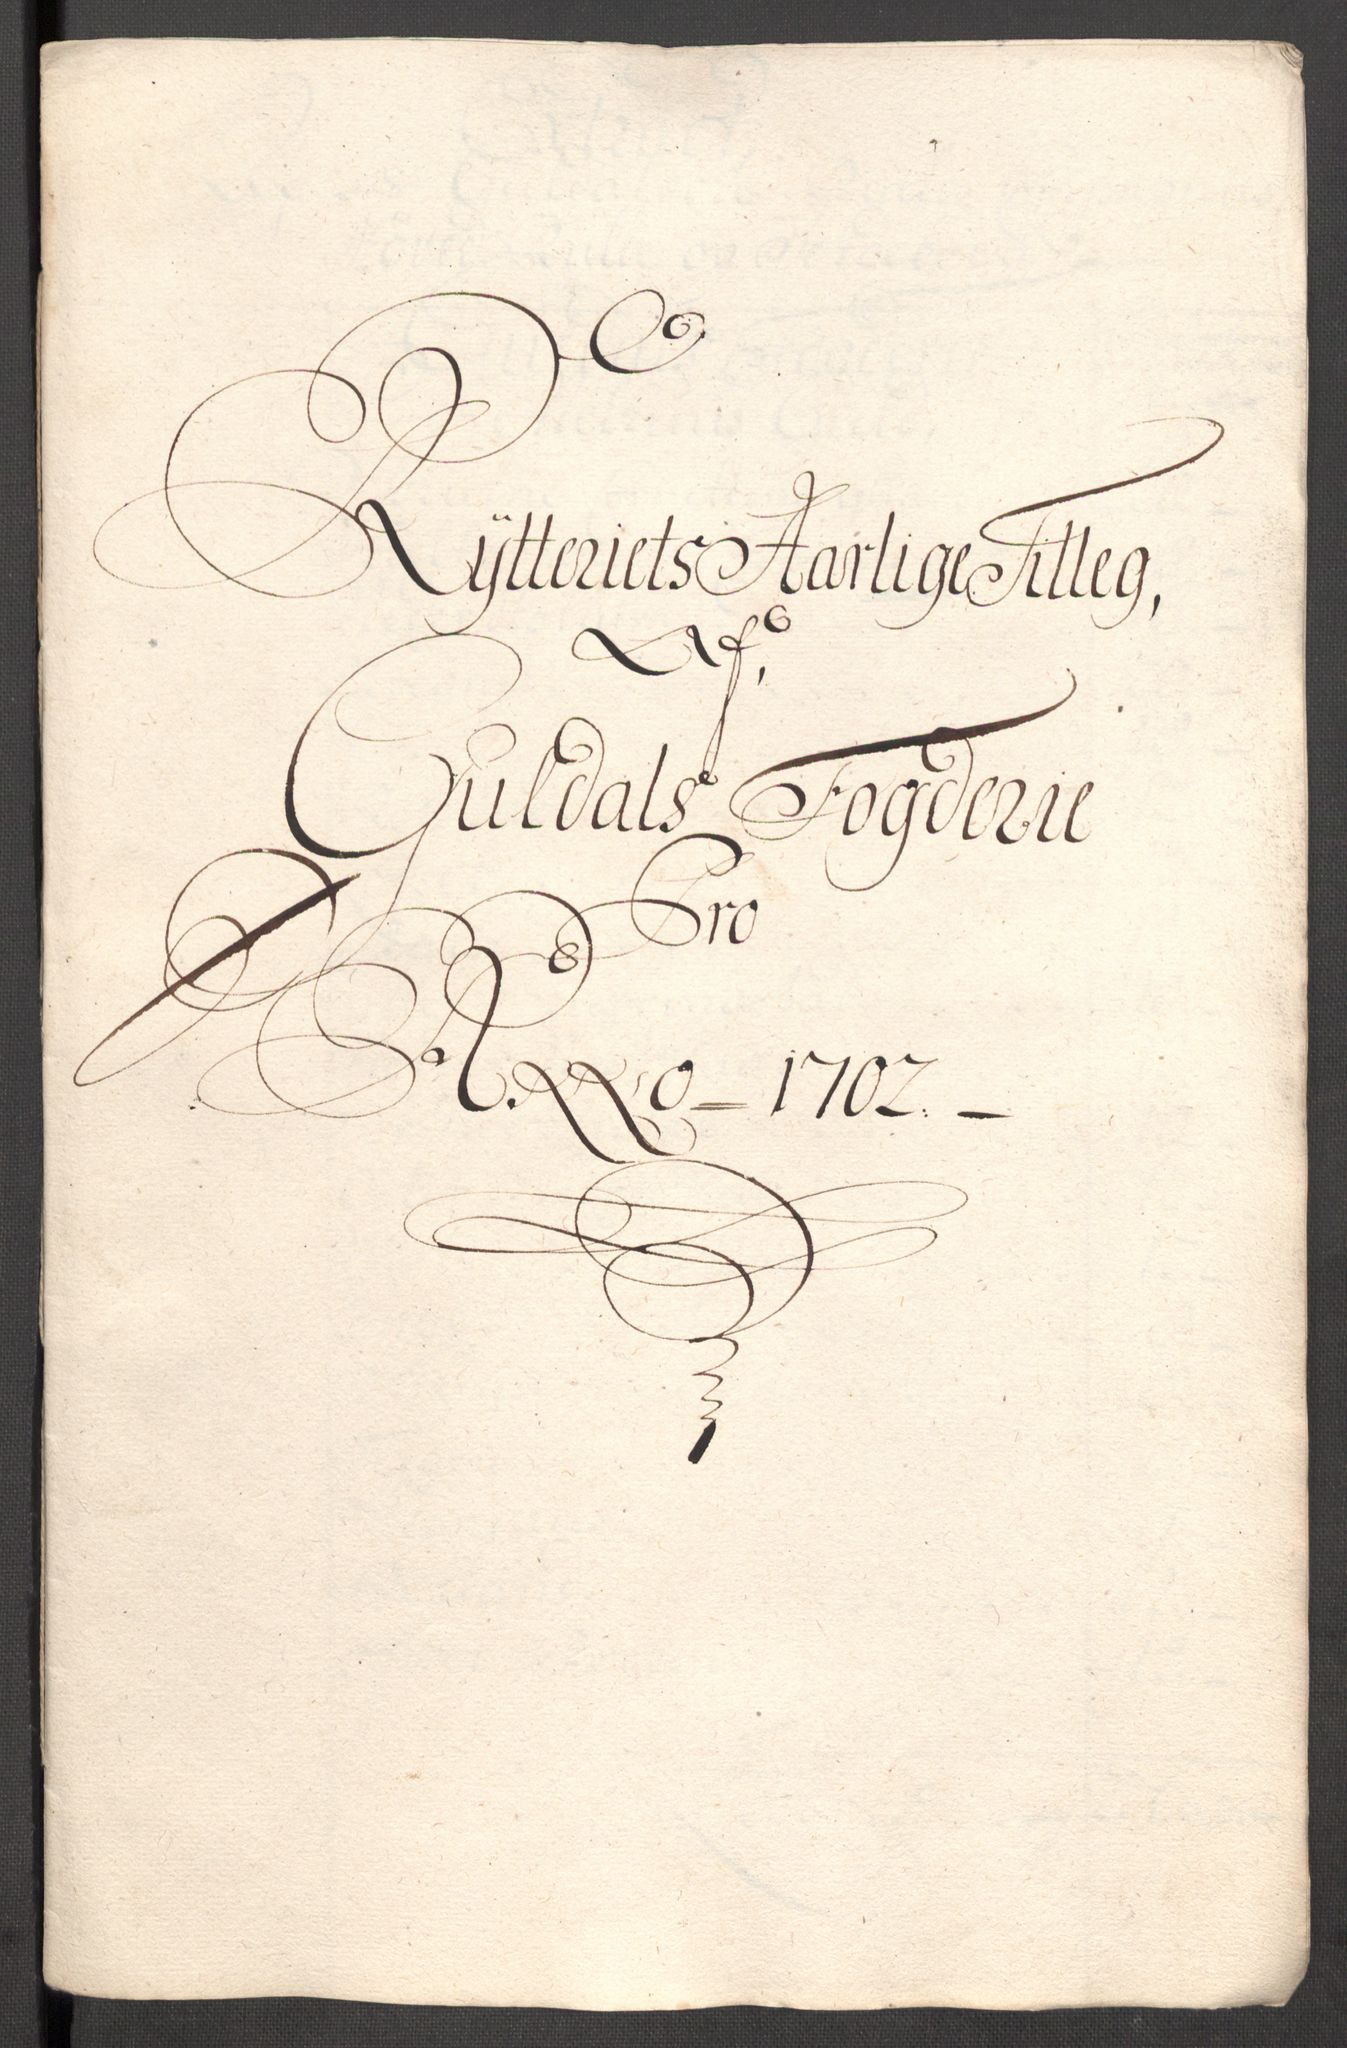 Rÿtteriets Aarlige Tilleg,
Af,
Guldals Fogderie
Pro
Anno - 1702. -